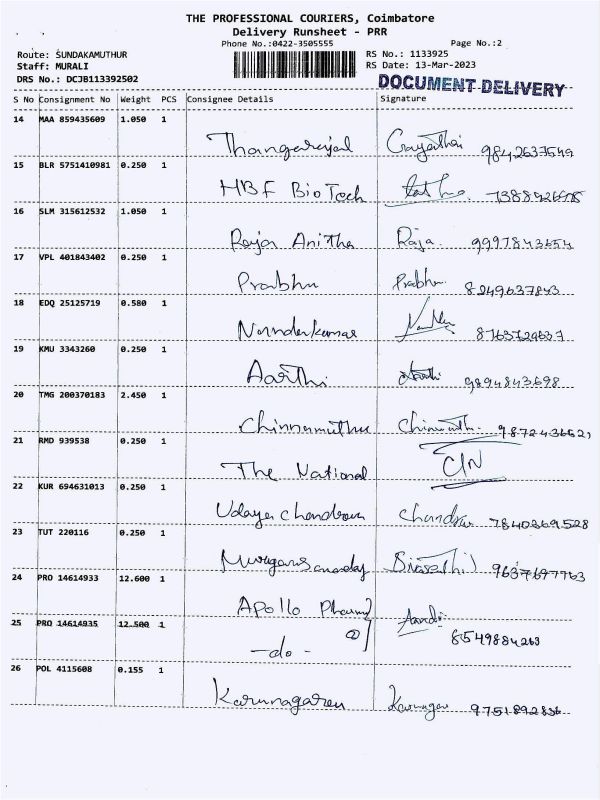 THE PROFESSIONAL COURIERS, Coimbatore
Delivery Runsheet - PRR
Phone No.:0422-3505555 Page No.:2
Route: SUNDAKAMUTHUR RS No.: 1133925
Staff: MURALI RS Date: 13-Mar-2023
DRS No.: DCJB113392502 DOCUMENT DELIVERY
S No Consignment No Weight PCS Consignee Details Signature
14 MAA 859435609 1.050 1
Thangarajal Gayathri 9842637549
15 BLR 5751410981 0.250 1
HBF BioTech
16 SLM 315612532 1.050 1
Raja Anitha Raja. 9997843654
17 VPL 401843402 0.250 1
Prabhu Prabhu 8249637843
18 EDQ 25125719 0.580 1
Narinderkumar 8763729637
19 KMU 3343260 0.250 1
Aarthi Aarthi 9894843698
20 TMG 200370183 2.450 1
Chinnamuthu
21 RMD 939538 0.250 1
The National
22 KUR 694631013 0.250 1
Udaya Chandran Chandra 7840369528
23 TUT 220116 0.250 1
Murugansanday 9637697763
24 PRO 14614933 12.600 1
Apollo Pharmy
25 PRO 14614935 12.500 1
-do- 8549884263
26 POL 4115608 0.155 1
Karunagaran Karunagar 9751892836